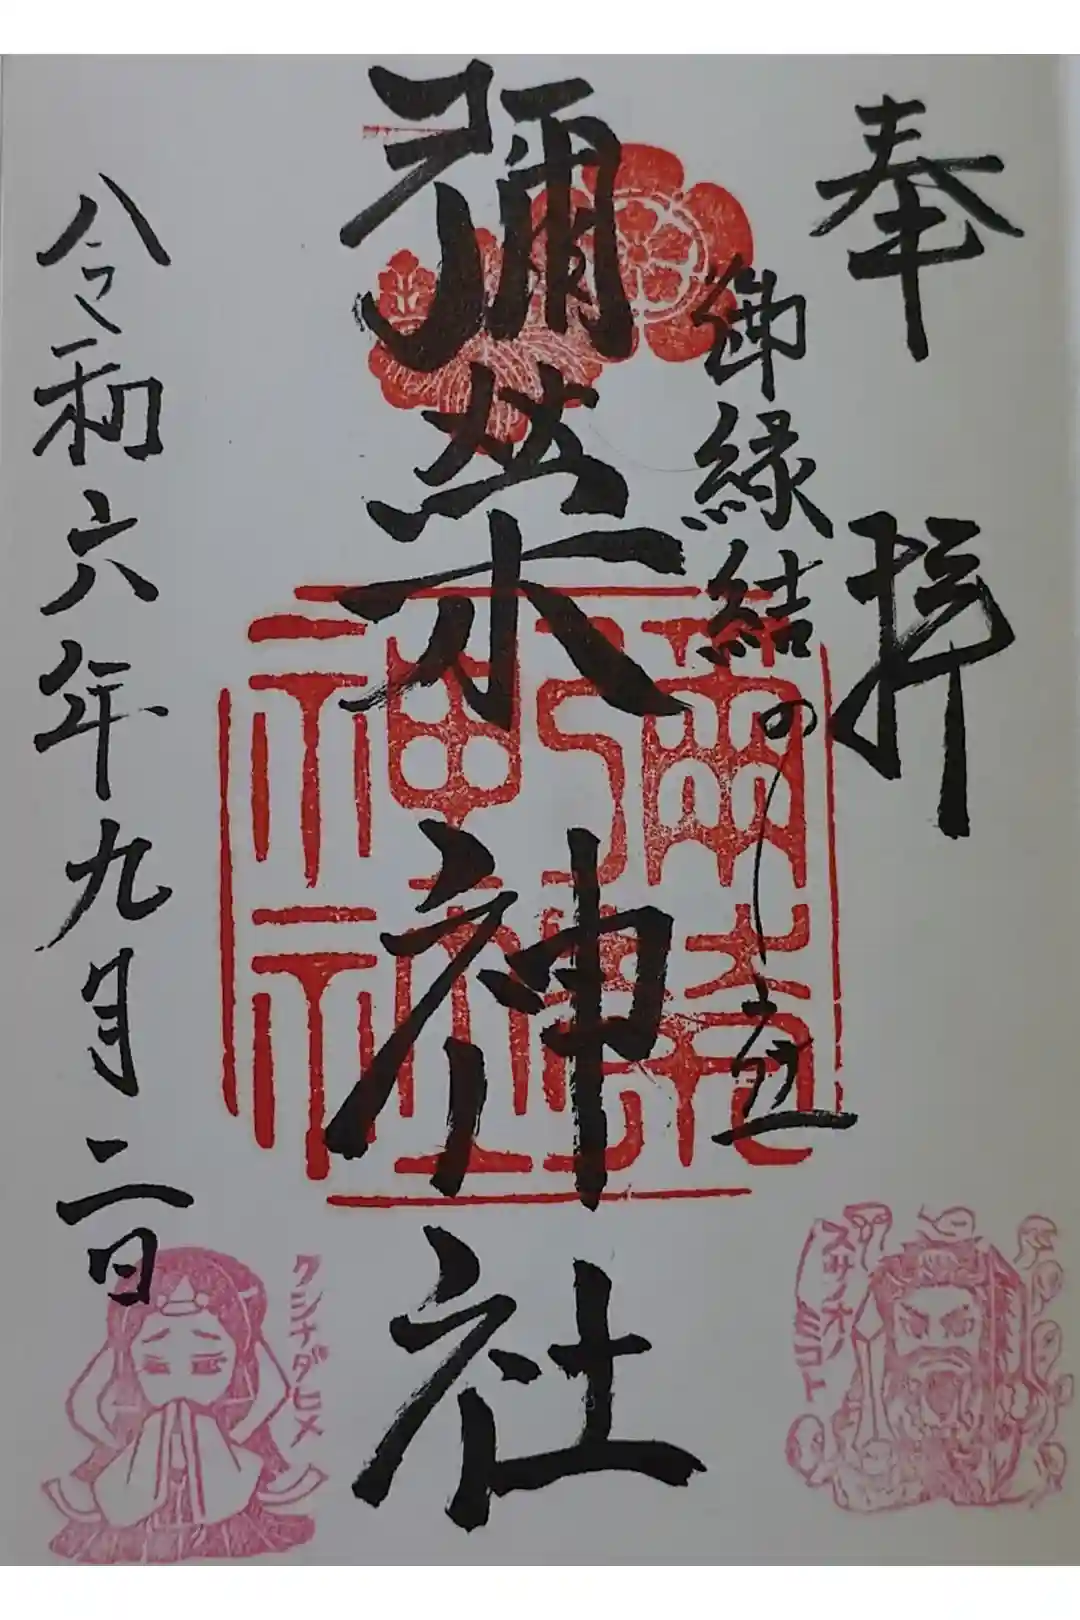 奉拝
御縁結の
彌榮神社
彌榮神社
令和六年九月二日
スサノオノミコト
クシナダヒメ